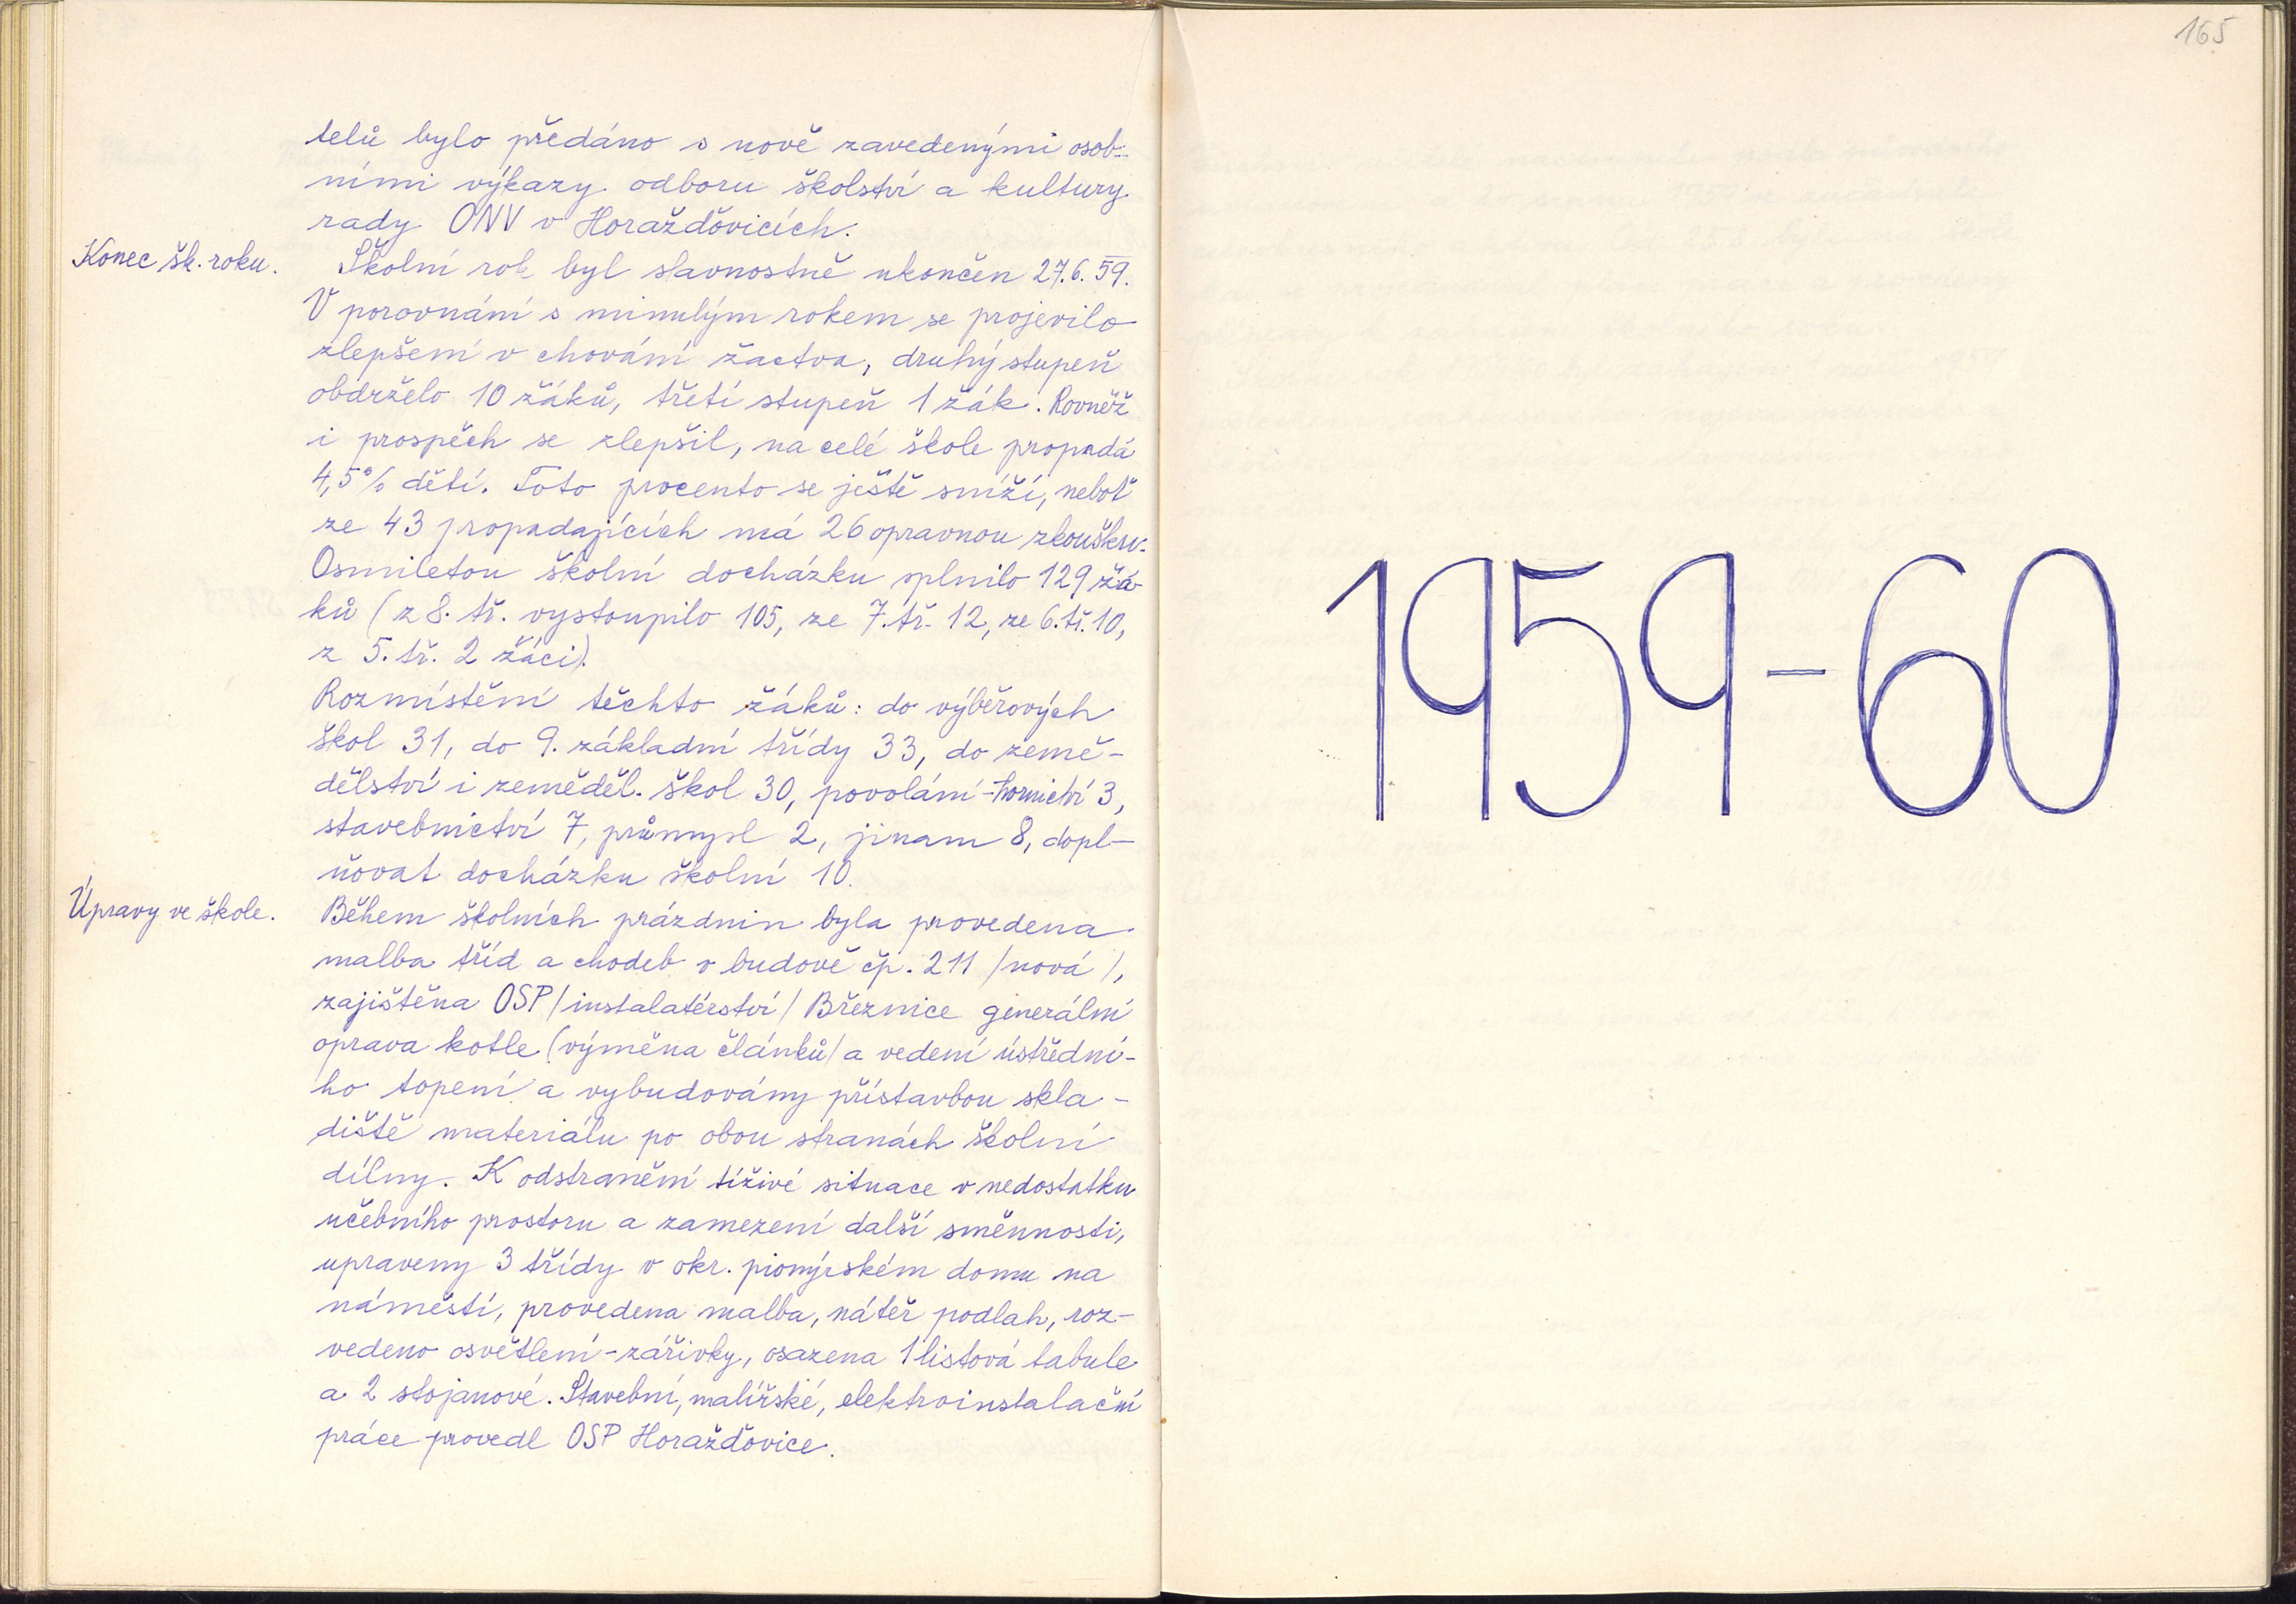 telů bylo předáno s nově zavedenými osob-
ními výkazy odboru školství a kultury
rady ONV v Horažďovicích.
Konec šk. roku.
Školní rok byl slavnostně ukončen 27.6.59.
V porovnání s minulým rokem se projevilo
zlepšení v chování žactva, druhý stupeň
obdrželo 10 žáků, třetí stupeň 1 žák. Rovněž
i prospěch se zlepšil, na celé škole propadá
4,5% dětí. Toto procento se ještě sníží, neboť
ze 43 propadajících má 26 opravnou zkoušku.
Osmiletou školní docházku splnilo 129 žá-
ků (z 8. tř. vystoupilo 105, ze 7. tř. 12, ze 6. tř. 10,
z 5. tř. 2 žáci).
Rozmístění těchto žáků: do výběrových
škol 31, do 9. základní třídy 33, do země-
dělství i zeměděl. škol 30, povolání - hornictví 3,
stavebnictví 7, průmysl 2, jinam 8, dopl-
ňovat docházku školní 10.
Úpravy ve škole.
Během školních prázdnin byla provedena
malba tříd a chodeb v budově čp. 211 /nová/,
zajištěna OSP /instalatérství/ Březnice generální
oprava kotle (výměna článků/ a vedení ústřední-
ho topení a vybudovány přístavbou skla-
diště materiálu po obou stranách školní
dílny. K odstranění tíživé situace v nedostatku
učebního prostoru a zamezení další směnnosti,
upraveny 3 třídy v okr. pionýrském domu na
náměstí, provedena malba, nátěr podlah, roz-
vedeno osvětlení - zářivky, osazena 1 listová tabule
a 2 stojanové. Stavební, malířské, elektroinstalační
práce provedl OSP Horažďovice.
165
1959-60